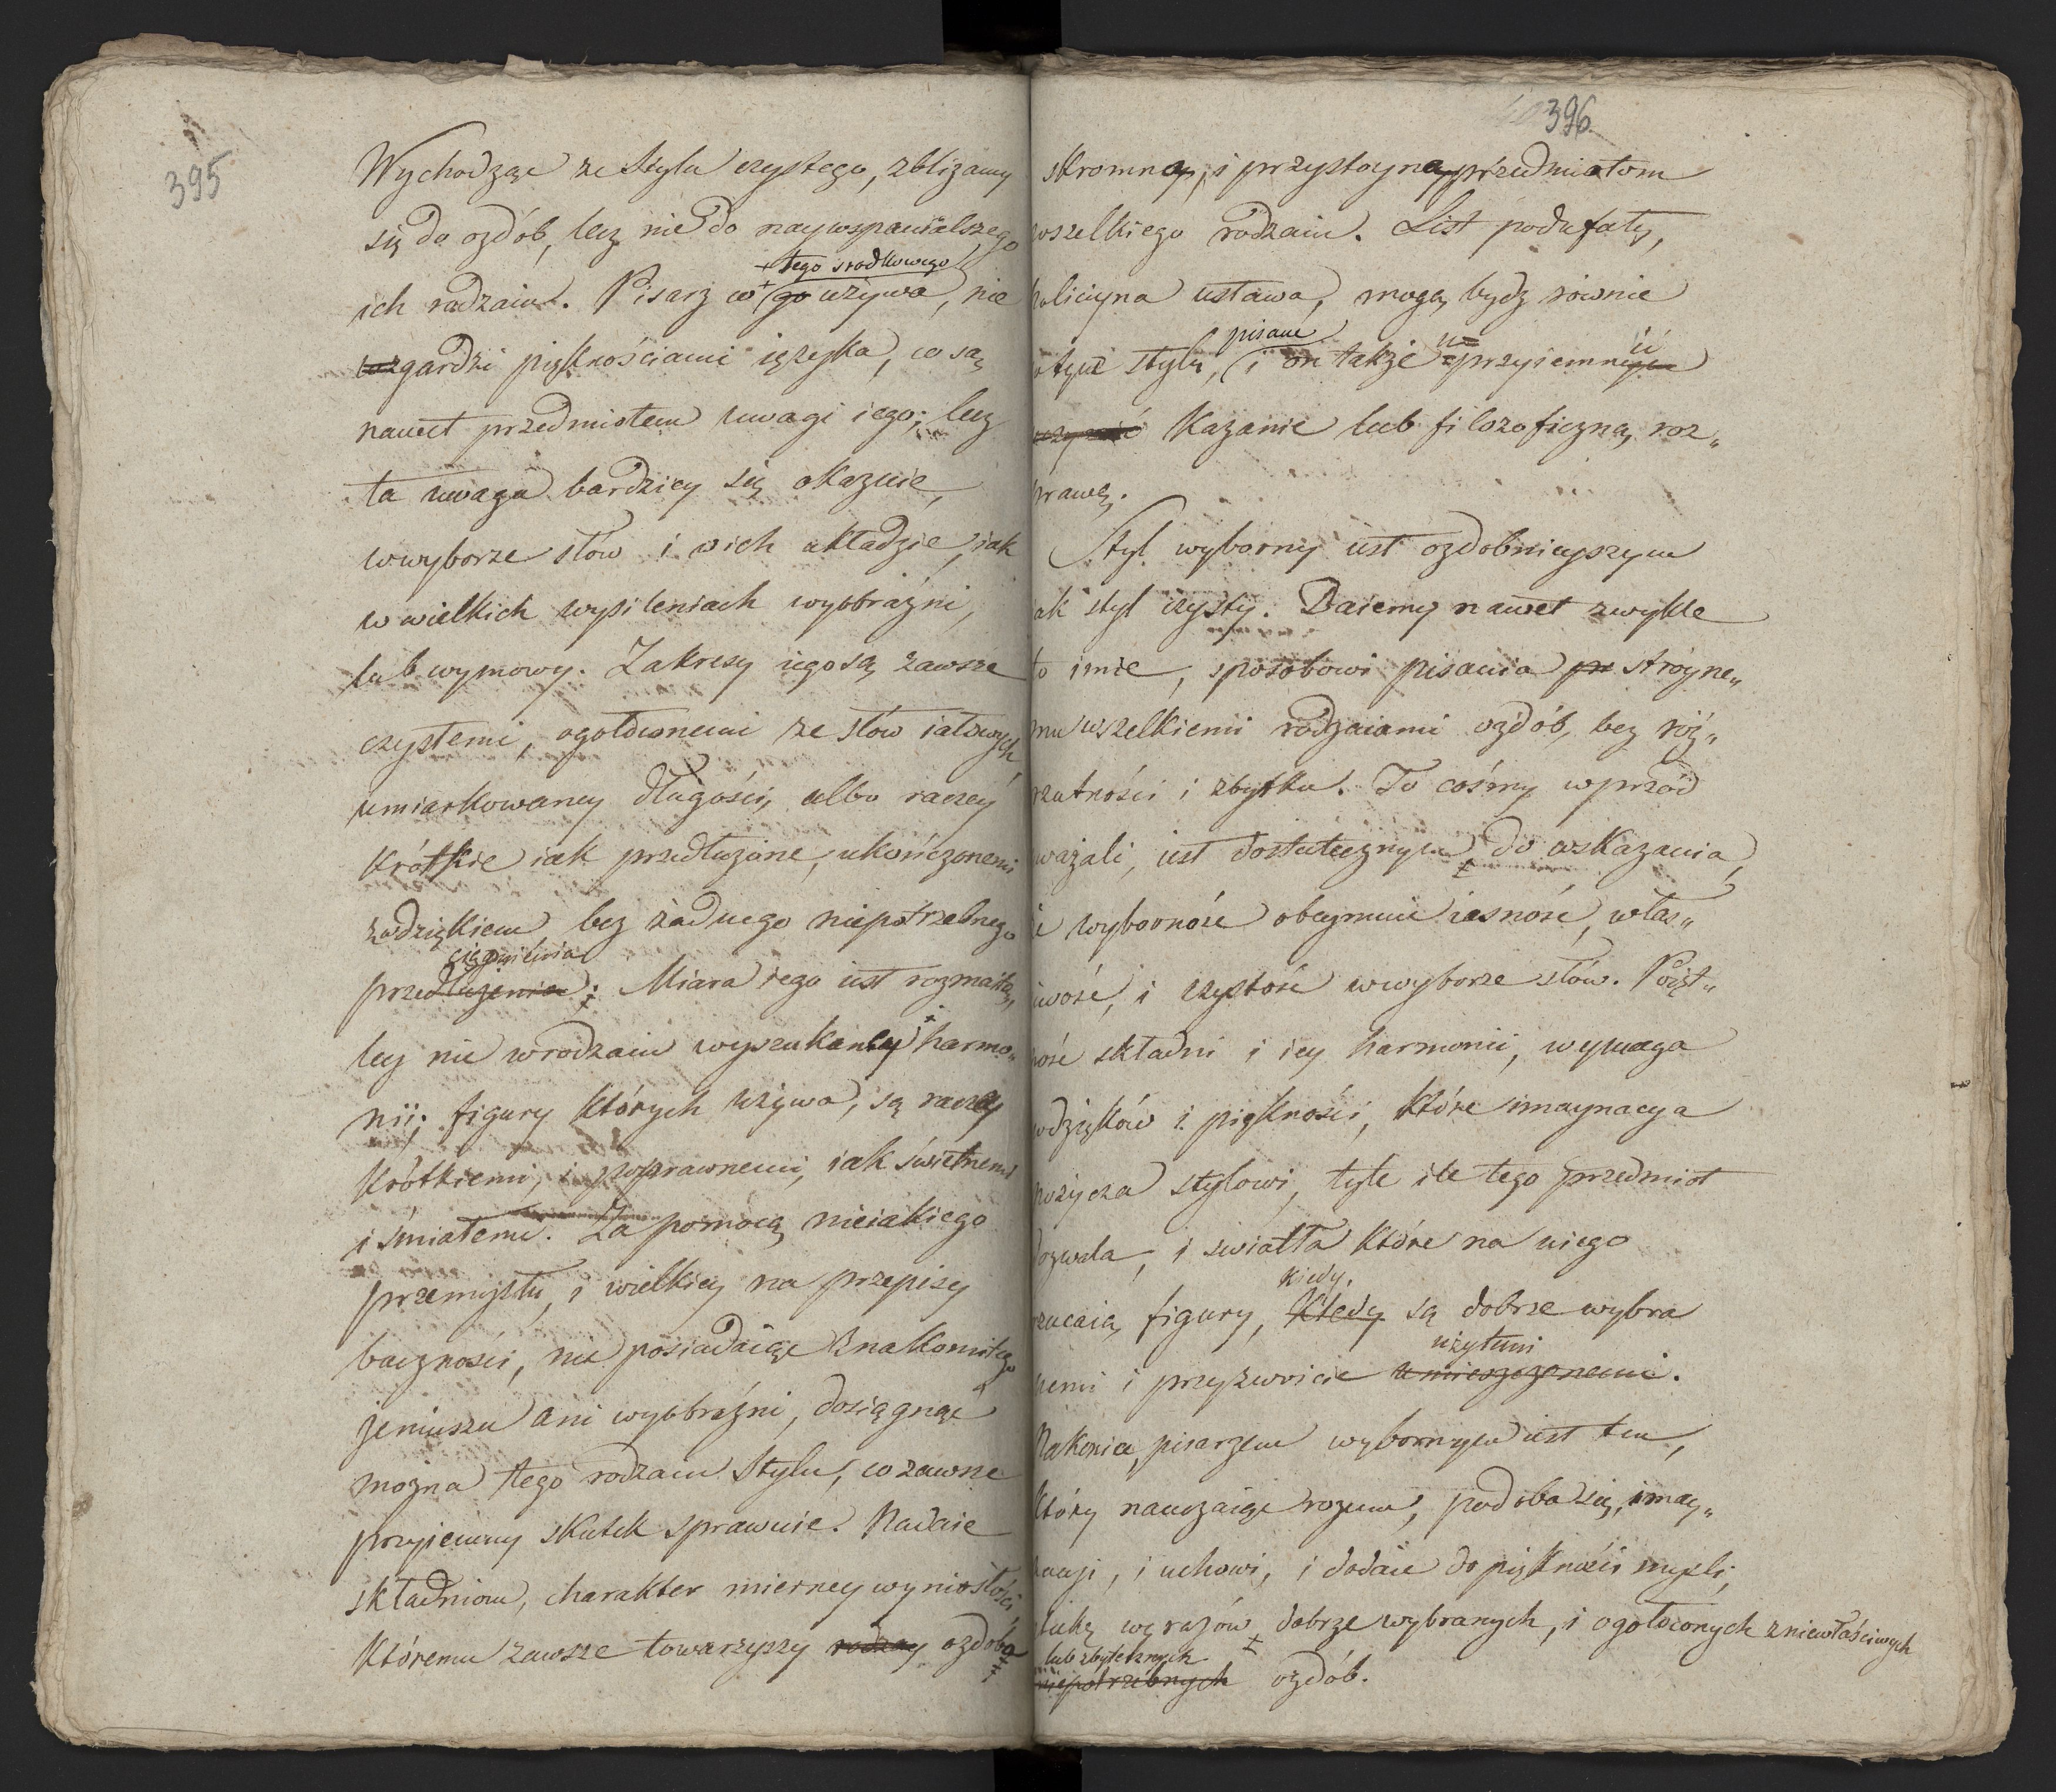 395
Wychodząc ze stylu czystego, zbliżamy
się do ozdób, lecz nie do naywspanialszego
ich rodzaiu. Pisarz co go używa, nie
+ tego srodkowego
wzgardzi pięknościami ięzyka, co są
nawet przedmiotem uwagi iego; lecz
ta uwaga bardziey się okazuie,
w wyborze słów i w ich układzie, iak
w wielkich wysileniach wyobraźni,
lub wymowy. Zakresy iego są zawsze
czystemi, ogołoconemi ze słów iałowych
umiarkowaney długości, albo raczey
krótkie iak przedłużone, ukończonemi
z wdziękiem bez żadnego niepotrzebnego
ciągnienia
przedłużenia; Miara iego iest rozmaitą,
lecz nie w rodzaiu wyszukaney harmo„
nii; figury których używa, są raczey
krótkiemi, i poprawnemi, iak świetnemi
i śmiałemi. Za pomocą nieiakiego
przemysłu, i wielkiey na przepisy
baczności, nie posiadaiąc znakomitego
jeniuszu ani wyobraźni, dosięgnąć
można tego rodzaiu stylu, co zawsze
przyiemny skutek sprawuie. Nadaie
składniom, charakter mierney wyniosłości
któremu zawsze towarzyszy rodzay ozdoba
396
skromna, i przystoyna przedmiotom
wszelkiego rodzaiu. List poufały,
policiyna ustawa, mogą bydz równie
pisane
w tym stylu, i on także uprzyiemnić
uczynić kazanie lub filozoficzną roz„
prawę.
Styl wyborny iest ozdobnieyszym
iak styl czysty. Daiemy nawet zwykle
to imie, sposobowi pisania pr stroyne„
mu wszelkiemi rodzaiami ozdób, bez róż„
rzutności i zbytku. To cośmy wprzód
uważali, iest dostatecznym do wskazania,
że wyborność obeymuie iasność, włas„
ciwość, i czystość w wyborze słów. Pięk„
ność składni i iey harmonii, wymaga
wdzięków i piękności, które imaynacya
pożycza stylowi, tyle ile tego przedmiot
dozwala, i swiatła które na niego
kiedy
rzucaią figury, kiedy są dobrze wybra
użytemi
nemi i przyzwoicie umieszczonemi.
Nakoniec, pisarzem wybornym iest ten,
który nauczaiąc rozum, podoba się, imay„
nacyi, i uchowi, i dodaie do piękności myśli,
sztukę wyrazów dobrze wybranych, i ogołoconych z niewłaściwych
lub zbytecznych
niepotrzebnych ozdób.